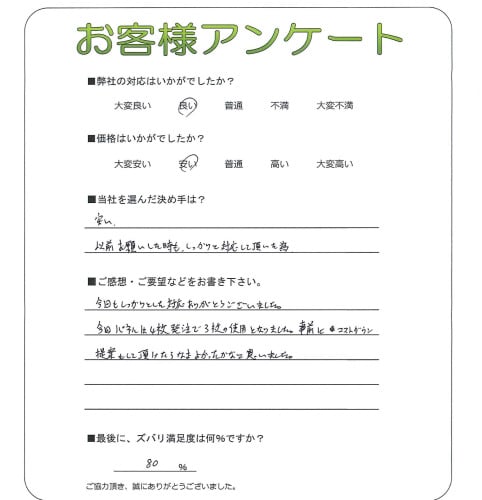 お客様アンケート
■弊社の対応はいかがでしたか？
大変良い 良い 普通 不満 大変不満
■価格はいかがでしたか？
大変安い 安い 普通 高い 大変高い
■当社を選んだ決め手は？
安い、
以前お願いした時も、しっかりと対応して頂いた為
■ご感想・ご要望などをお書き下さい。
今回もしっかりとした対応ありがとうございました。
今回パネルは4枚発注で3枚の使用となりました。事前に コストダウン
提案もして頂けたらなまよかったかなと思いました。
■最後に、ズバリ満足度は何%ですか？
80 %
ご協力頂き、誠にありがとうございました。